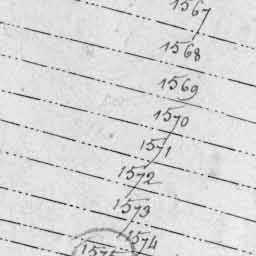 1567
1568
1569
1570
1571
1572
1573
1574
1575